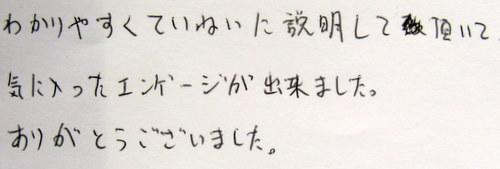 わかりやすくていねいに説明して頂いて
気に入ったエンゲージが出来ました。
ありがとうございました。